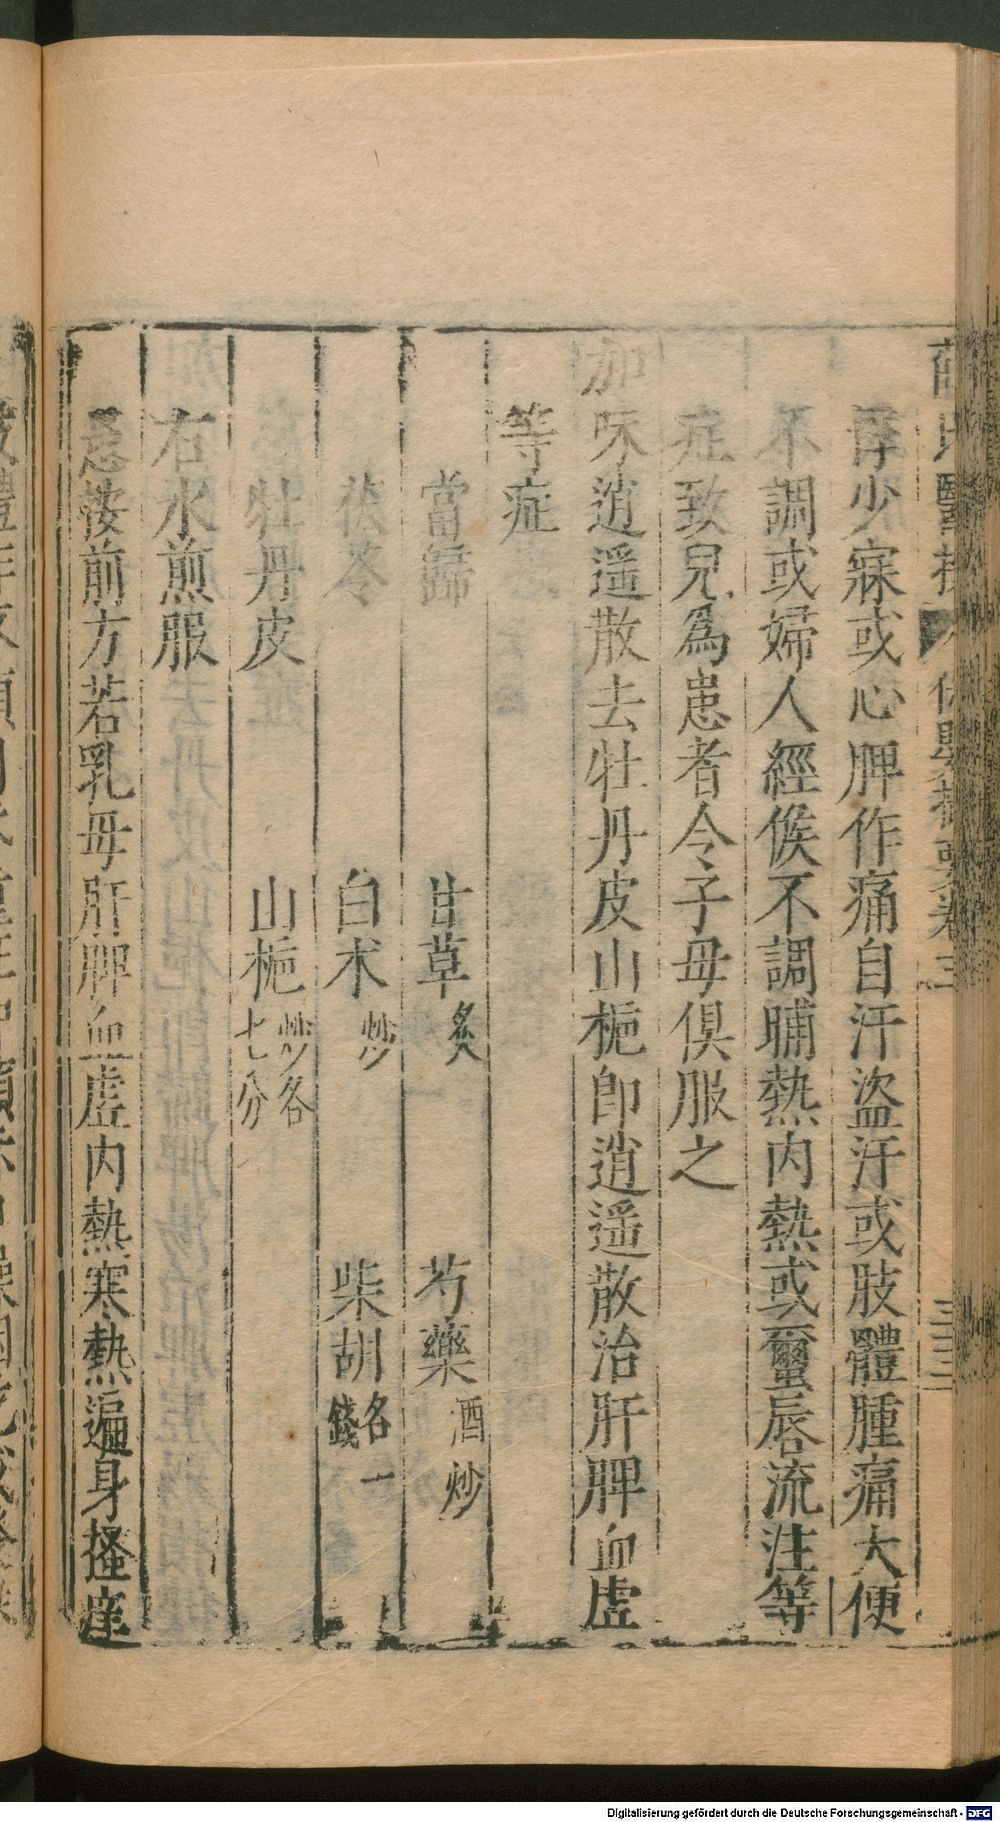 薛氏醫按 保嬰撮要卷三 三三
孿少寐或心脾作痛自汗盜汗或肢體腫痛大便
不調或婦人經候不調晡熱内熱或蠒唇流注等
症致兒爲患者令子母俱服之
加味逍遥散去牡丹皮山梔即逍遥散治肝脾血虛
等症
當歸 甘草炙 芍藥酒炒
茯苓 白术炒 柴胡各一錢
牡丹皮 山梔炒各七分
右水煎服
愚按前方若乳母肝脾血虛内熱寒熱遍身搔痒
Digitalisierung gefördert durch die Deutsche Forschungsgemeinschaft - DFG